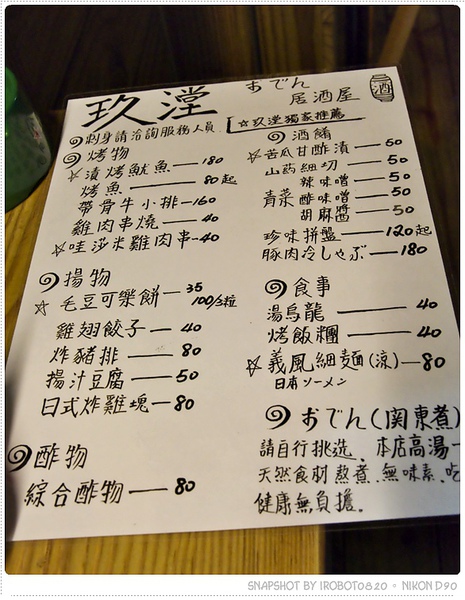 玖瀅 おでん
居酒屋
酒
◎刺身請洽詢服務人員
☆玖瀅獨家推薦
◎烤物
☆漬烤魷魚—180
烤魚—80起
帶骨牛小排—160
雞肉串燒—40
☆哇莎米雞肉串—40
◎揚物
☆毛豆可樂餅—35
100/3粒
雞翅餃子—40
炸豬排—80
揚汁豆腐—50
日式炸雞塊—80
◎酢物
綜合酢物—80
◎酒餚
☆苦瓜甘酢漬—50
山药細切—50
辣味噌—50
青菜 酢味噌—50
胡麻醬—50
珍味拼盤—120起
豚肉冷しゃぶ—180
◎食事
湯烏龍—40
烤飯糰—40
☆義風細麵(涼)—80
日本ソーメン
◎おでん(関東煮)
請自行挑选、本店高湯一
天然食材熬煮.無味素.吃
健康無負擔.
SNAPSHOT BY IROBOT0820 。 NIKON D90